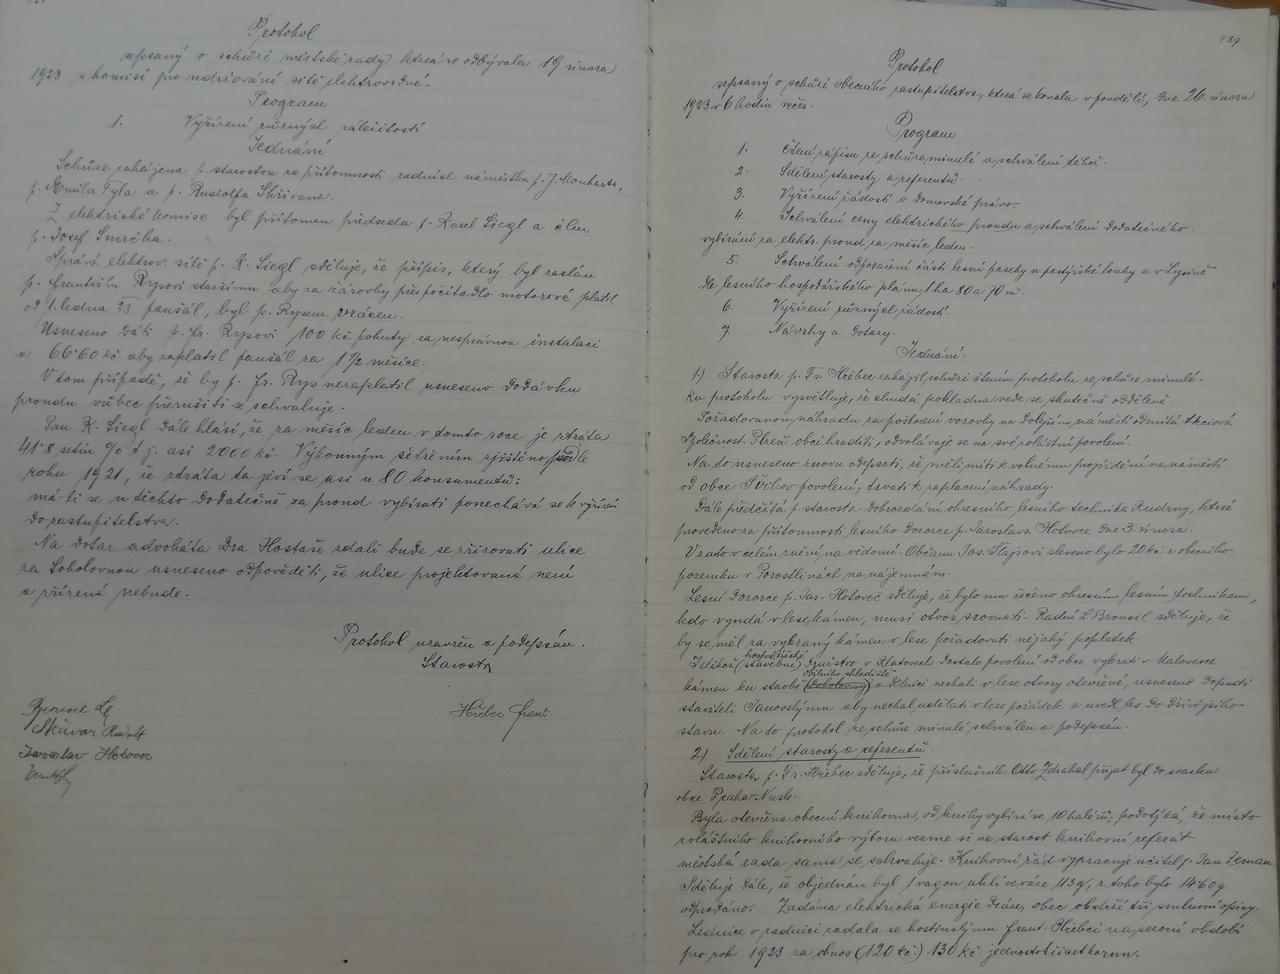 Protokol
sepsaný o schůzi městské rady která se odbývala 19 února
1923 s komisí pro udržování sítě elektrovodné.
Program
1. Vyřízení různých záležitostí
Jednání
Schůze zahájena p. starostou za přítomnosti radních náměstka p. J. Mouharta,
p. Emila Tyla a p. Rudolfa Skřivana.
Z elektrické komise byl přítomen předseda p. Karel Siegl a člen
p. Josef Smrčka.
Správce elektrov. sítě p. K. Siegl sděluje, že přípis, který byl zaslán
p. Františku Rysovi staršímu aby za žárovky přes počitadlo motorové platil
od 1. ledna 23 paušál, byl p. Rysem vrácen.
Usneseno dáti p. Fr. Rysovi 100 Kč pokuty za nesprávnou instalaci
a 66·60 Kč. aby zaplatil paušál za 1 1/2 měsíce.
V tom případě, že by p. Fr. Rys nezaplatil usneseno dodávku
proudu vůbec přerušiti se schvaluje.
Pan K. Siegl dále hlásí, že za měsíc leden v tomto roce je ztráta
41·8 setin % t.j. asi 2000 Kč. Výkonným šetřením zjištěno podle
roku 1921, že ztráta ta jeví se asi u 80 konsumentů;
má-li se u těchto dodatečně za proud vybírati ponechává se k vyřízení
do zastupitelstva.
Na dotaz advokáta Dra Hostaše zdali bude se zřizovati ulice
za Sokolovnou usneseno odpověděti, že ulice projektovaná není
a zřízena nebude.
Protokol uzavřen a podepsán.
Starosta
Hřebec Frant.
Skřivan Rudolf
Jaroslav Hotovec
139
Protokol
sepsaný o schůzi obecního zastupitelstva, která se konala v pondělí, dne 26. února
1923 v 6 hodin več.
Program
1. Čtení zápisu ze schůze minulé a schválení téhož.
2. Sdělení starosty a referentů.
3. Vyřízení žádostí o domovské právo.
4. Schválení ceny elektrického proudu a schválení dodatečného
vybírání za elektr. proud za měsíc leden.
5. Schválení odprodění části lesní paseky u pastýřské louky a v Lysině
dle lesního hospodářského plánu 1 ha 80 a 70 m².
6. Vyřízení různých žádostí
7. Návrhy a dotazy.
Jednání:
1.) Starosta p. Fr. Hřebec zahájil schůzi čtením protokolu ze schůze minulé.
Ku protokolu vysvětluje, že chudá pokladna vede se skutečně odděleně
Požadovanou náhradu za postavení vozovky na dolejším náměstí odmítá Akciová
Společnost Plzeň obci hraditi, odvolávaje se na své zvláštní povolení.
Na to usneseno znovu odepsati, že měli míti k volnému projíždění na náměstí
od obce Švihov povolení, trvati k zaplacení náhrady.
Dále předčítá p. starosta dohrozdání okresního lesního technika Kudrny, které
provedeno za přítomnosti lesního dozorce p. Jaroslava Hotovce dne 3. února.
Vzato v celém znění na vědomí. Občanu Jos. Šlajsovi sleveno bylo 20 Kč z obecního
pozemku v Porostlinách na nájemném.
Lesní dozorce p. Jar. Hotovec sděluje, že bylo mu řečeno okresním lesním technikem,
kdo vyndá v lese kámen, musí otvor srovnati. Radní L. Brousil sděluje, že
by se měl za vybraný kámen v lese požadovati nějaký poplatek.
Jelikož (stavební) hospodářské družstvo v Klatovech dostalo povolení od obce vybrati v Malovesce
kámen ku stavbě (Sokolovny) obilního skladiště a dělníci nechali v lese otvory otevřené, usneseno dopsati
staviteli Janovskýmu aby nechal udělati v lese pořádek a uvedl les do dřívějšího
stavu. Na to protokol ze schůze minulé schválen a podepsán.
2.) Sdělení starosty a referentů.
Starosta p. Fr. Hřebec sděluje, že příslušník Otto Zdrahal přijat byl do svazku
obce Praha-Nusle.
Byla otevřena obecní knihovna, od knihy vybírá se 10 haléřů; podotýká, že místo
zvláštního knihovního výboru vezme si na starost knihovní referát
městská rada sama se schvaluje. Knihovní řád vypracuje učitel p. Jan Zeman
Sděluje dále, že objednán byl 1 vagon uhlí ve váze 113 q, z toho bylo 14·60 q
odprodáno. Zadána elektrická energie dráze, obec obdrží tři smluvní opisy.
Lednice v radnici zadala se hostinskýmu Frant. Hřebci na sezoní období
pro rok 1923 za obnos (120 Kč.) 130 Kč. jednostotřicet korun.